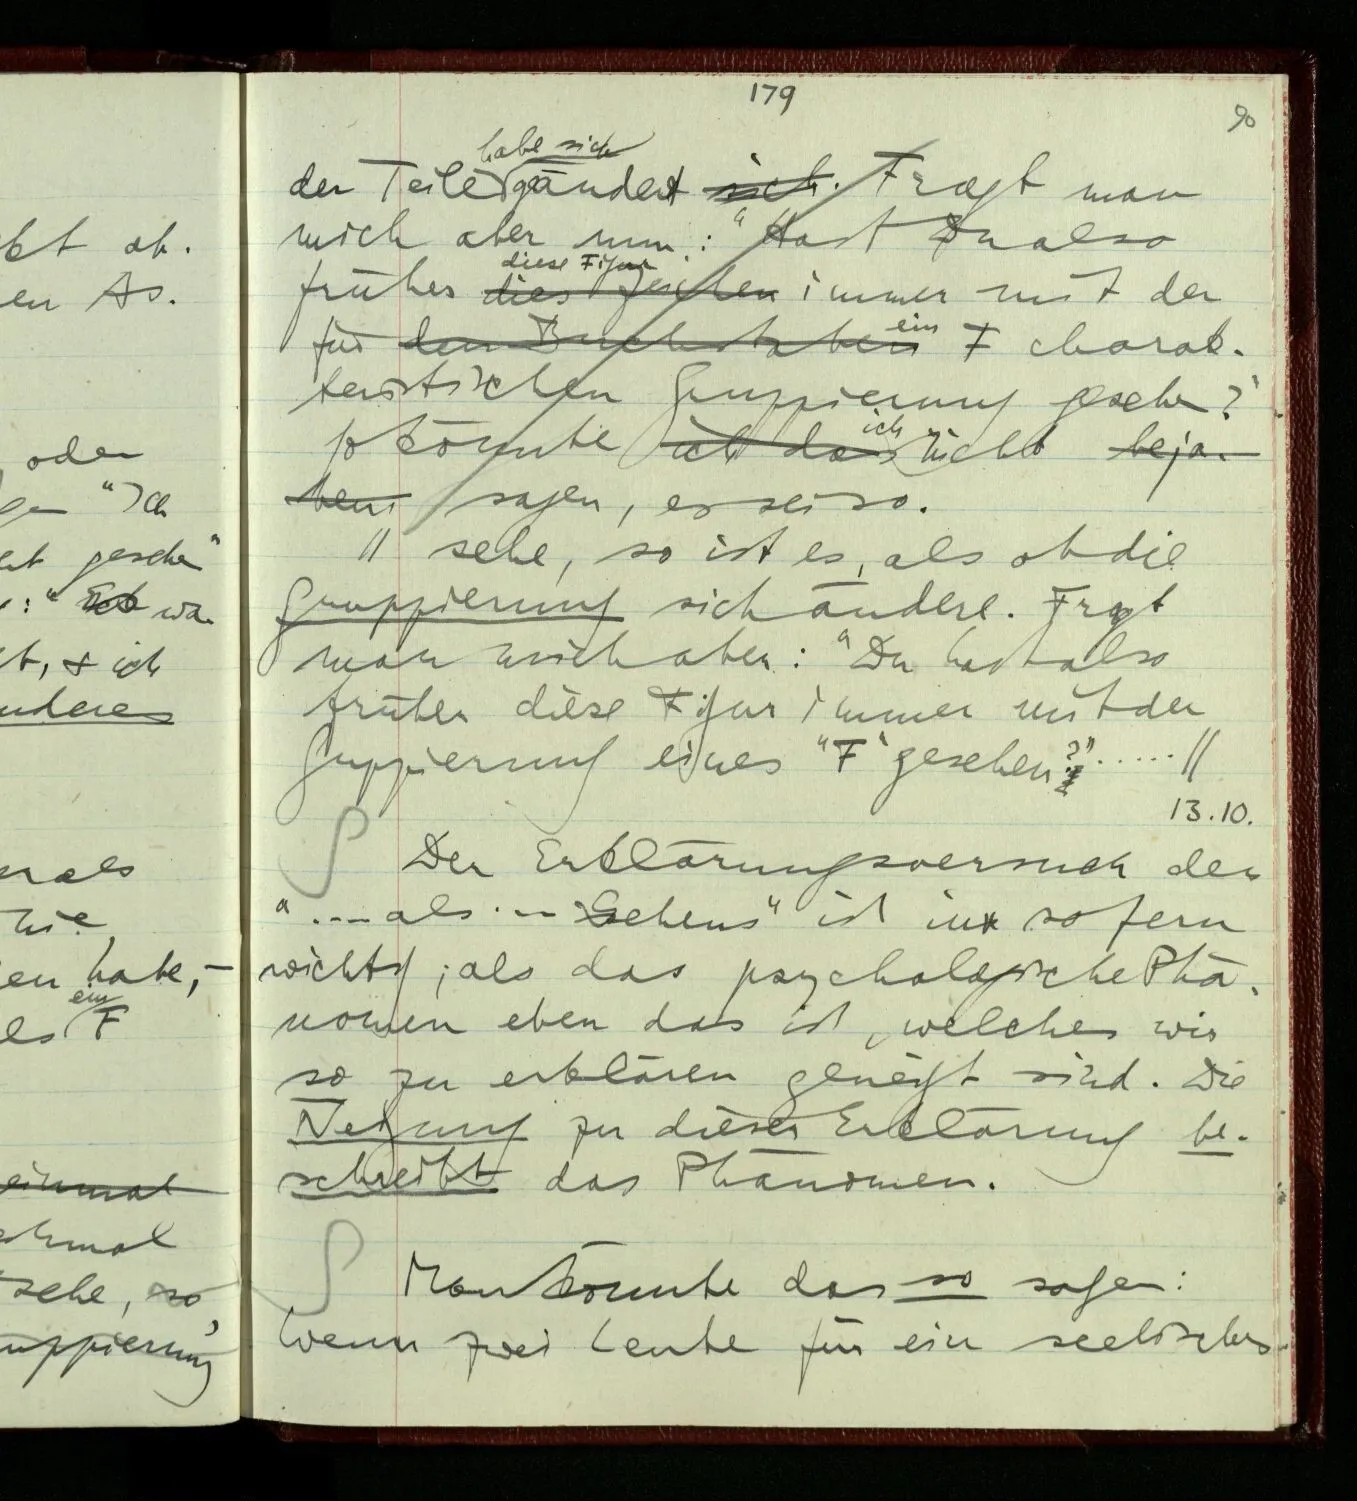 179
90
habe sich
der Teile geändert sich. Fragt man
mich aber nun: "Hast Du also
diese Figur
früher dies Zeichen immer mit der
ein
für den Buchstaben F charak-
teristischen Gruppierung gesehen?"
ich
so könnte ich das nicht beja-
hen sagen, es sei so.
|| sehe, so ist es, als ob die
Gruppierung sich ändere. Fragt
man mich aber: "Du hast also
früher diese Figur immer mit der
Gruppierung eines "F" gesehen?" ..... ||
13.10.
Der Erklärungsversuch des
"...als ... Sehens" ist in sofern
wichtig, als das psychologische Phä-
nomen eben das ist, welches wir
so zu erklären geneigt sind. Die
Neigung zu dieser Erklärung be-
schreibt das Phänomen.
Man könnte das so sagen:
Wenn zwei Leute für ein seelisches
kt ab.
en As.
oder
"Ich
gesehen"
:" Ich wa
t, & ich
nderes
als
hie
en habe,-
ein
es F
einmal
chmal
sehe, so
uppierung